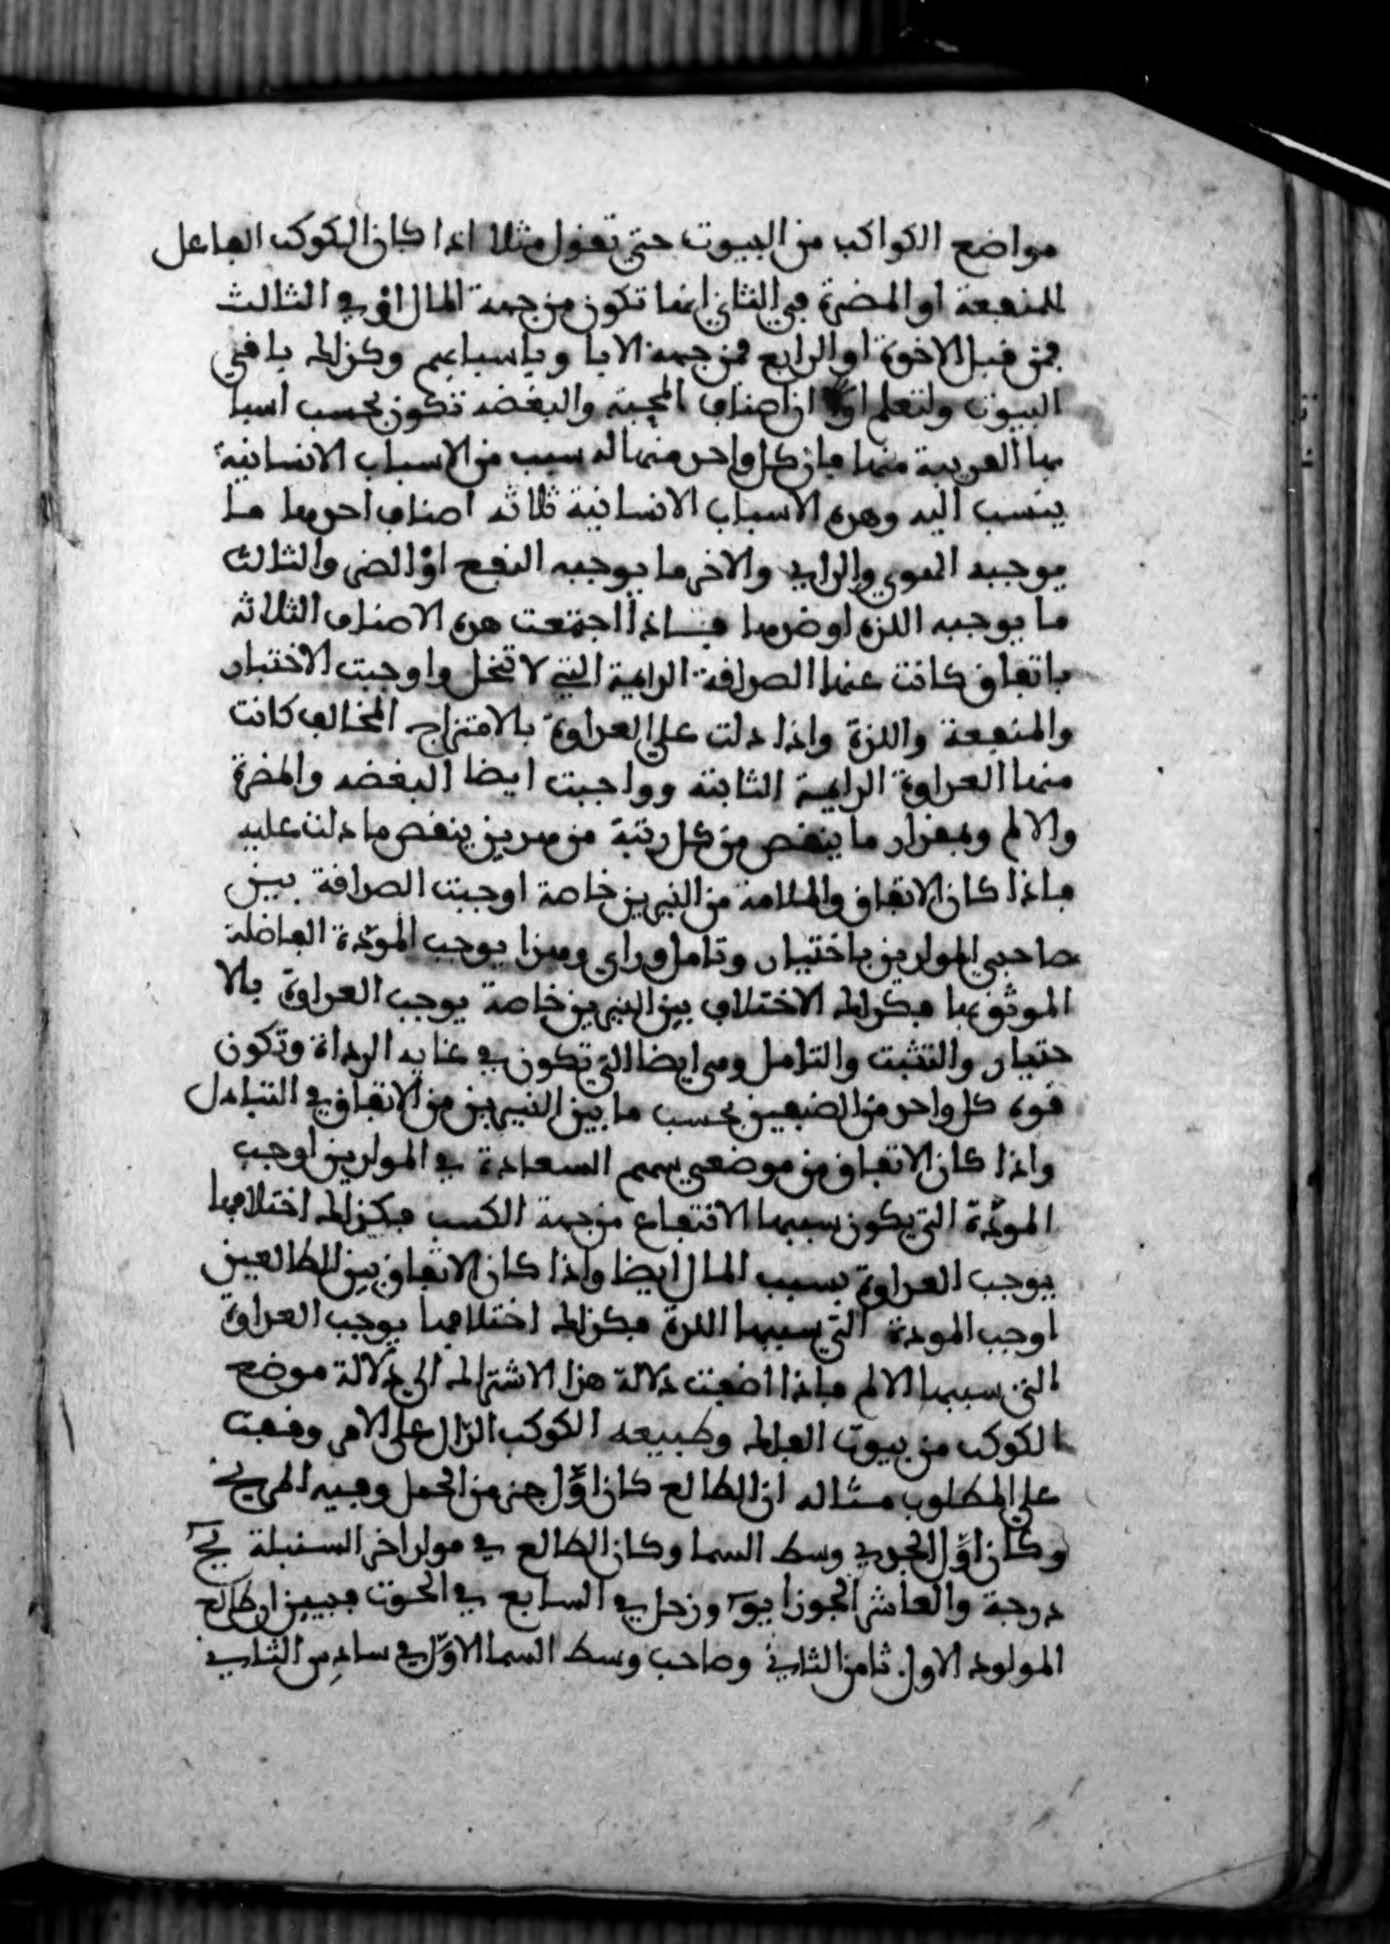 مواضع الكواكب من البيوت حتى تقول مثلا اذا كان الكوكب الفاعل
للمنفعة او المضرة في الثاني انها تكون من جهة المال او في الثالث
فمن قبل الاخوة او الرابع فمن جهة الابا وباسبابهم وكذلك باقي
البيوت ولتعلم اولا ان اصناف المحبة والبغضه تكون بحسب اسبا
بها القريبة منها فان كل واحد منها له سبب من الاسباب الانسانية
ينسب اليه وهذه الاسباب الانسانية ثلاثه اصناف احدها ما
يوجبه الهوى والراي والاخر ما يوجبه النفع او الضر والثالث
ما يوجبه اللذة او ضدها فاذا اجتمعت هذه الاصناف الثلاثه
باتفاق كانت عنها الصداقة الدايمة التي لا تنحل واوجبت الاختيار
والمنفعة واللذة واذا دلت على العداوة بالامتزاج المخالف كانت
منها العداوة الدايمة الثابته وواجبت ايضا البغضه والمضرة
والالم وبمقدار ما ينقص من كل رتبة من هذين ينقص ما دلت عليه
فاذا كان الاتفاق والملامة من النيرين خاصة اوجبت الصداقة بين
صاحبي المولدين باختيار وتامل وراي وهذا يوجب المودة الفاضلة
الموثق بها فكذلك الاختلاف بين النيرين خاصة يوجب العداوة بالا
ختيار والتثبت والتامل وهي ايضا التي تكون في غايه الرداة وتكون
قوة كل واحد من الصنفين بحسب ما بين النيرين من الاتفاق في التبادل
واذا كان الاتفاق من موضعي سهم السعادة في المولدين اوجب
المودة التي يكون سببها الانتفاع من جهة الكسب فكذلك اختلافهما
يوجب العداوة بسبب المال ايضا واذا كان الاتفاق بين الطالعين
اوجب المودة التي سببها اللذة فكذلك اختلافهما يوجب العداوة
التي سببها الالم فاذا اضفت دلالة هذا الاشتراك الى دلالة موضع
الكوكب من بيوت الفلك وطبيعه الكوكب الدال على الامر وقفت
على المطلوب مثاله ان الطالع كان اول جزء من الحمل وفيه المريخ
وكان اول الجدي وسط السما وكان الطالع في مولد اخر السنبلة يح
درجة والعاشر الجوزا يو وزحل في السابع في الحوت فبين ان طالع
المولود الاول ثامن الثاني وصاحب وسط السما الاول في سادس الثاني